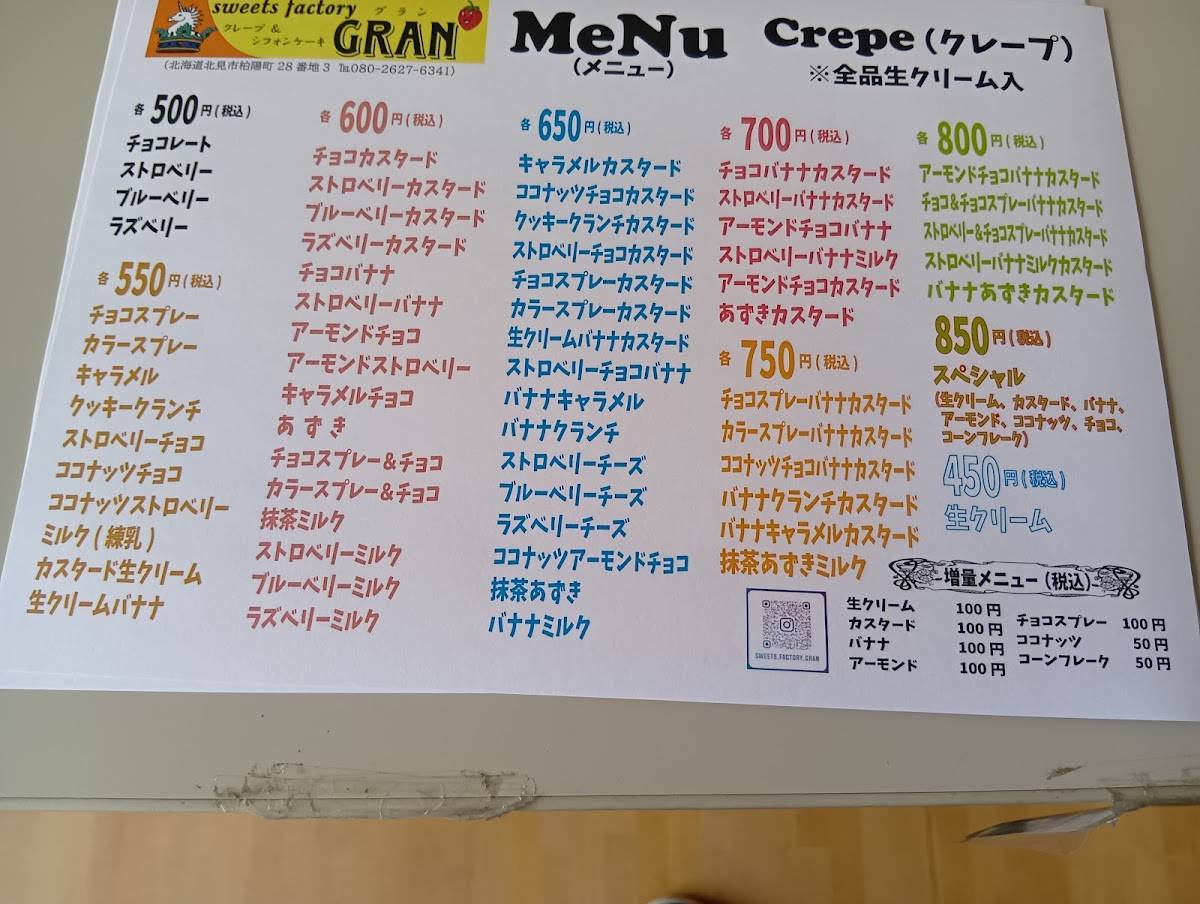 sweets factory
グラン
クレープ &
シフォンケーキ
GRAN
(北海道北見市柏陽町28番地3 ℡080-2627-6341)
MeNu
(メニュー)
Crepe(クレープ)
※全品生クリーム入
各500円(税込)
チョコレート
ストロベリー
ブルーベリー
ラズベリー
各550円(税込)
チョコスプレー
カラースプレー
キャラメル
クッキークランチ
ストロベリーチョコ
ココナッツチョコ
ココナッツストロベリー
ミルク(練乳)
カスタード生クリーム
生クリームバナナ
各600円(税込)
チョコカスタード
ストロベリーカスタード
ブルーベリーカスタード
ラズベリーカスタード
チョコバナナ
ストロベリーバナナ
アーモンドチョコ
アーモンドストロベリー
キャラメルチョコ
あずき
チョコスプレー&チョコ
カラースプレー&チョコ
抹茶ミルク
ストロベリーミルク
ブルーベリーミルク
ラズベリーミルク
各650円(税込)
キャラメルカスタード
ココナッツチョコカスタード
クッキークランチカスタード
ストロベリーチョコカスタード
チョコスプレーカスタード
カラースプレーカスタード
生クリームバナナカスタード
ストロベリーチョコバナナ
バナナキャラメル
バナナクランチ
ストロベリーチーズ
ブルーベリーチーズ
ラズベリーチーズ
ココナッツアーモンドチョコ
抹茶あずき
バナナミルク
各700円(税込)
チョコバナナカスタード
ストロベリーバナナカスタード
アーモンドチョコバナナ
ストロベリーバナナミルク
アーモンドチョコカスタード
あずきカスタード
各750円(税込)
チョコスプレーバナナカスタード
カラースプレーバナナカスタード
ココナッツチョコバナナカスタード
バナナクランチカスタード
バナナキャラメルカスタード
抹茶あずきミルク
各800円(税込)
アーモンドチョコバナナカスタード
チョコ&チョコスプレーバナナカスタード
ストロベリー&チョコスプレーバナナカスタード
ストロベリーバナナミルクカスタード
バナナあずきカスタード
850円(税込)
スペシャル
(生クリーム、カスタード、バナナ、
アーモンド、ココナッツ、チョコ、
コーンフレーク)
450円(税込)
生クリーム
増量メニュー(税込)
生クリーム 100円
カスタード 100円
バナナ 100円
アーモンド 100円
チョコスプレー 100円
ココナッツ 50円
コーンフレーク 50円
SWEETS.FACTORY.GRAN